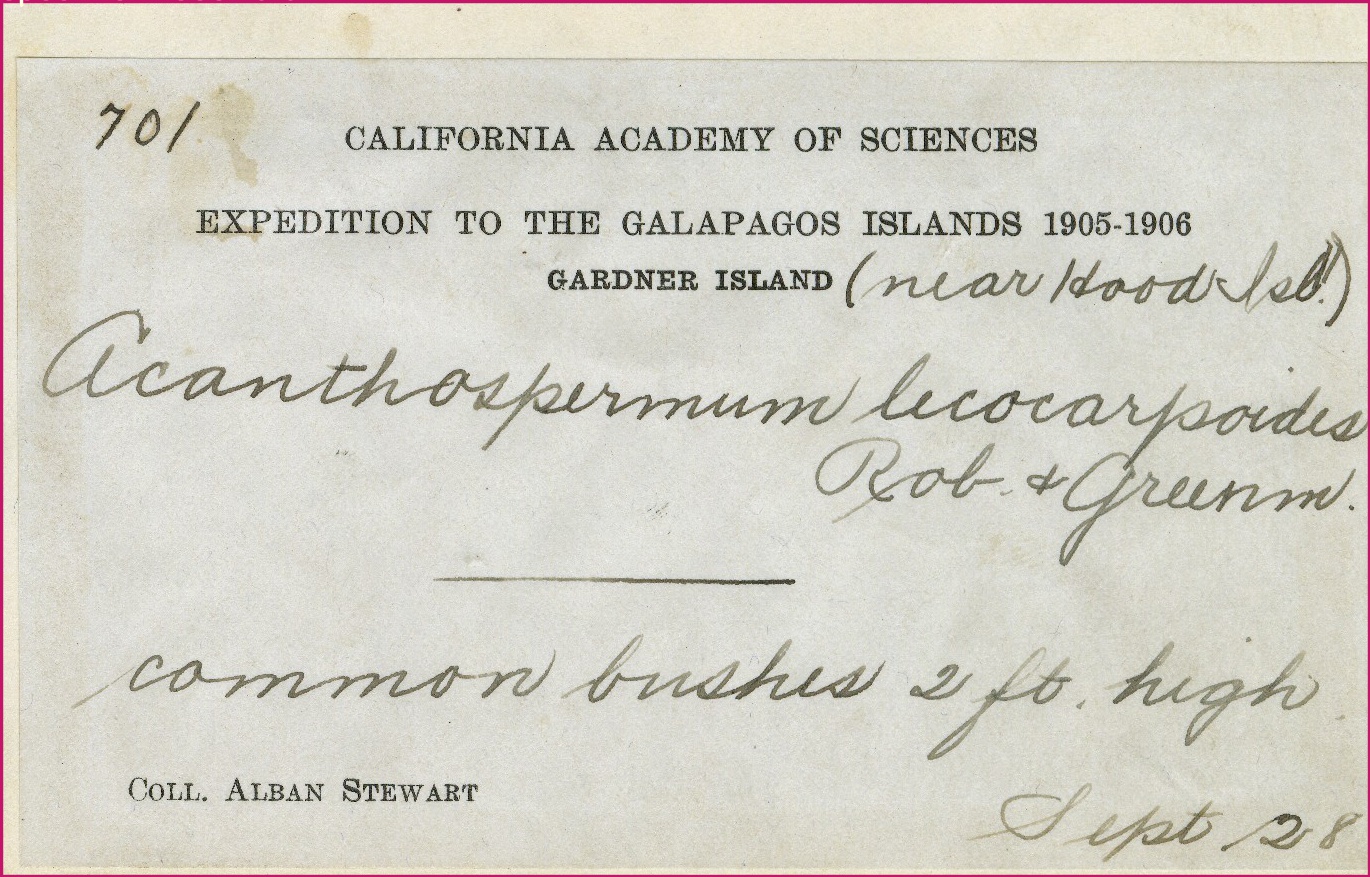 701
CALIFORNIA ACADEMY OF SCIENCES
EXPEDITION TO THE GALAPAGOS ISLANDS 1905-1906
GARDNER ISLAND (near Hood Isl.)
Acanthospermum lecocarpoides
Rob. & Greenm.
common bushes 2 ft. high
COLL. ALBAN STEWART
Sept. 28